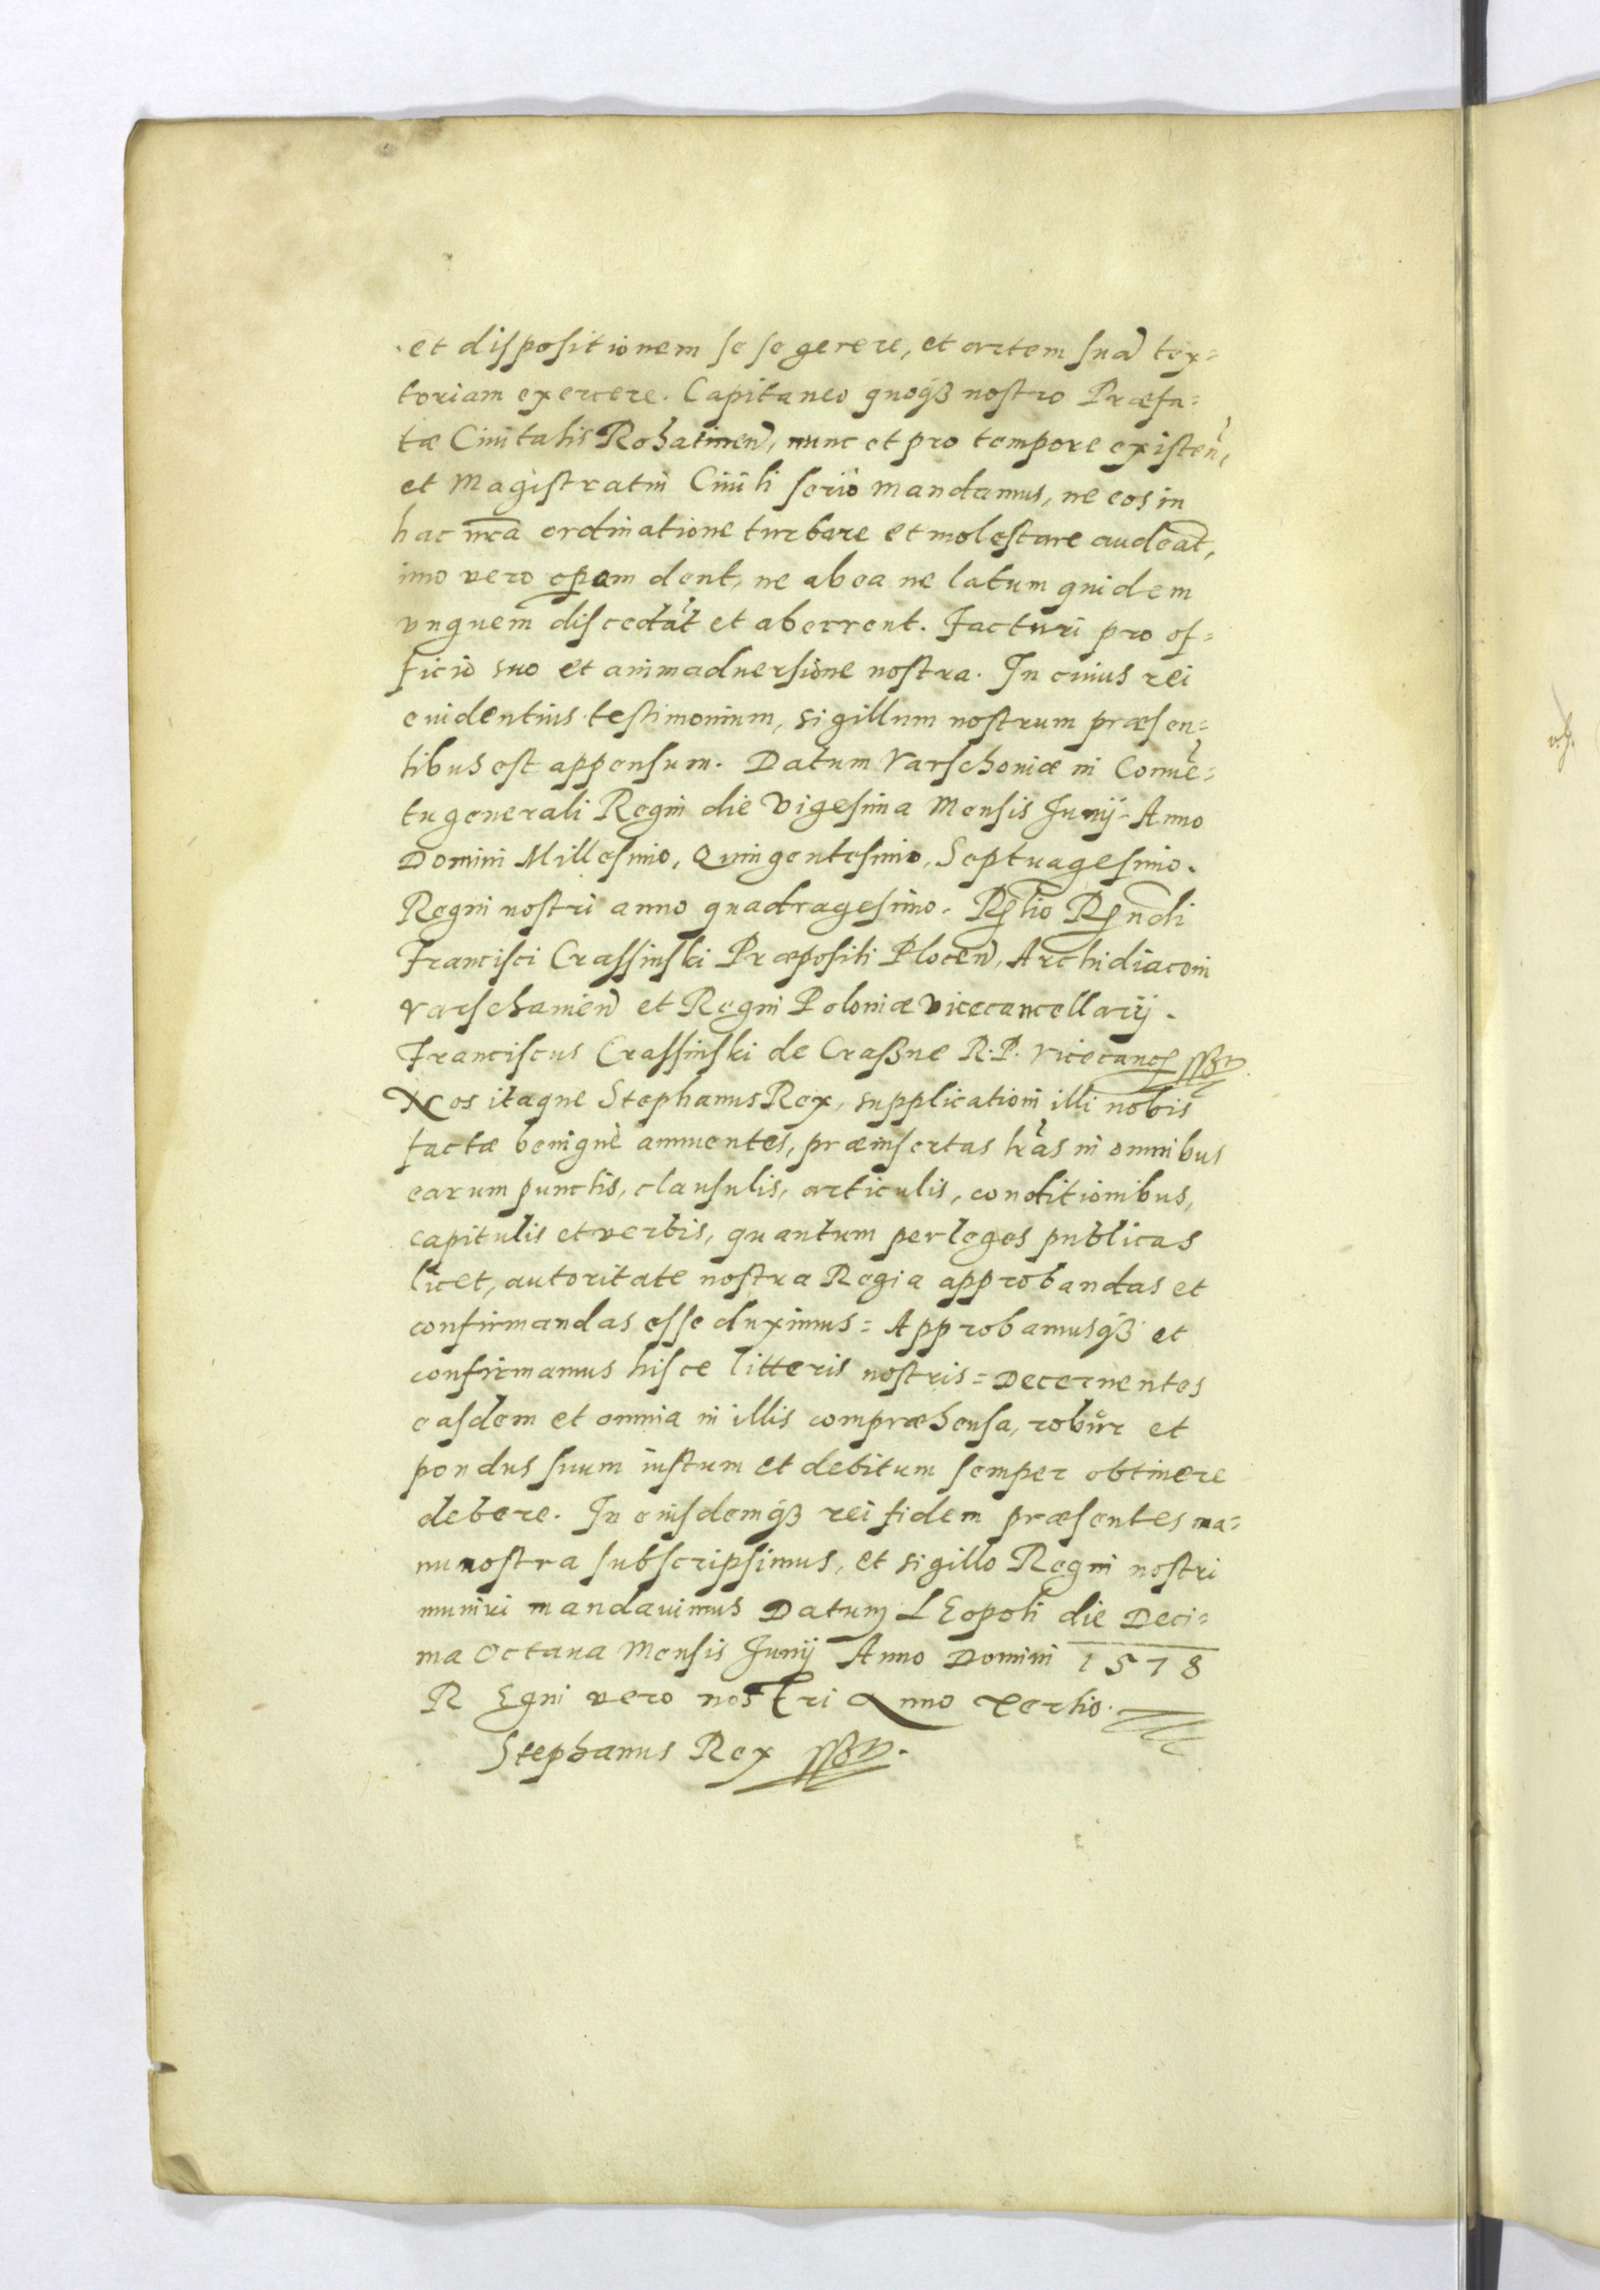 et dispositionem se se gerere, et artem suã tex=
toriam exercere. Capitaneo quoqȝ nostro Præfa=
tæ Ciuitatis Rohatinen̄, nunc et pro tempore existen̄,
et Magistratui Ciuili serio mandamus, ne eos in
hac nr̄a ordinatione turbare et molestare audeāt,
imo vero operam dent, ne ab ea ne latum quidem
vnguem discedāt et aberrent. Facturi pro of=
ficio suo et animaduersione nostra. In cuius rei
euidentius testimonium, sigillum nostrum præsen=
tibus est appensum. Datum Varschouiæ in Conuē=
tu generali Regni die Vigesima Mensis Junij. Anno
Domini Millesimo, Quingentesimo, Septuagesimo.
Regni nostri anno quadragesimo. Rel̄io Rp̄ndi
Francisci Crassinski Præpositi Plocen̄, Archidiaconi
Varschauien̄ et Regni Poloniæ Vicecancellarij.
Franciscus Crassinski de Craßne R. P. Vicecanc̄ sst
Nos itaque Stephanus Rex, supplicationi illi nobis
factæ benignè annuentes, præinsertas lr̄as in omnibus
earum punctis, clausulis, articulis, conditionibus,
capitulis et verbis, quantum per leges publicas
licet, autoritate nostra Regia approbandas et
confirmandas esse duximus = Approbamusqȝ et
confirmamus hisce litteris nostris = Decernentes
easdem et omnia in illis compræhensa, robur et
pondus suum iustum et debitum semper obtinere
debere. In eiusdemqȝ rei fidem præsentes ma=
nu nostra subscripsimus, et sigillo Regni nostri
muniri mandauimus Datum LEopoli die Deci=
ma Octaua Mensis Junij Anno Domini 1578
REgni vero nostri Anno tertio.
Stephanus Rex sst.